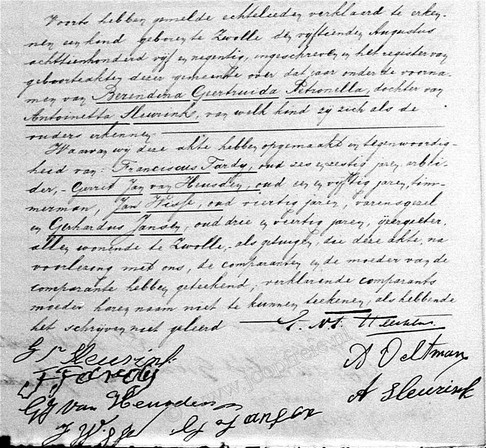 Voorts hebben gemelde echtelieden verklaard te erken-
nen een kind, geboren te Zwolle den vyftienden Augustus
achttienhonderd vyf en negentig, ingeschreven in het register van
geboorteakten dezer gemeente over dat jaar onder de voorna-
men van Berendina Geertruida Petronella, dochter van
Antoinetta Sleurink, van welk kind zy zich als de
ouders erkennen
Waarvan wy deze akte hebben opgemaakt in tegenwoordig-
heid van: Franciscus Fardy, oud zes en zestig jaren, arbei-
der, Gerrit Jan van Heusden, oud en vyftig jaren, tim-
merman, Jan Wispe, oud veertig jaren, varensgezel
en Gerhardus Jansen, oud drie en veertig jaren, yzergieter,
allen wonende te Zwolle, als getuigen, die deze akte, na
voorlezing met ons, de comparanten en de moeder van de
comparante hebben geteekend, verklarende comparants
moeder haren naam niet te kunnen teekenen, als hebbende
het schryven niet geleerd
G Sleurink A Oeltman
F Fardy
GJ van Heusden A Sleurink
J Wispe G Jansen